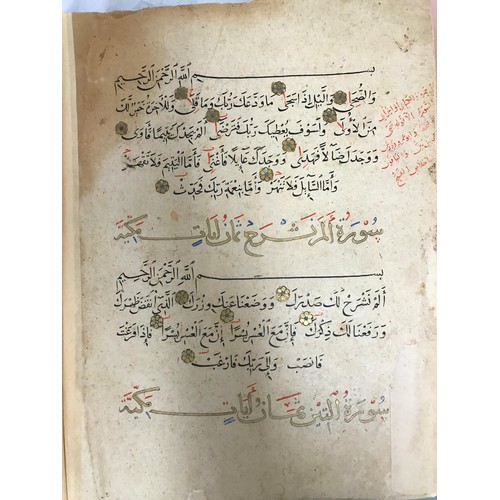 بسم الله الرحمن الرحيم
والضحى واليل إذا سجى ما ودعك ربك وما قلى وللآخرة خير لك
من الأولى ولسوف يعطيك ربك فترضى ألم يجدك يتيما فآوى
ووجدك ضالا فهدى ووجدك عايلا فأغنى فأما اليتيم فلا تقهر
وأما السايل فلا تنهر وأما بنعمة ربك فحدث
سورة ألم نشرح ثمان آيات مكية
بسم الله الرحمن الرحيم
ألم نشرح لك صدرك ووضعنا عنك وزرك الذي أنقض ظهرك
ورفعنا لك ذكرك فإن مع العسر يسرا إن مع العسر يسرا فإذا فرغت
فانصب وإلى ربك فارغب
سورة التين ثمان آيات مكية